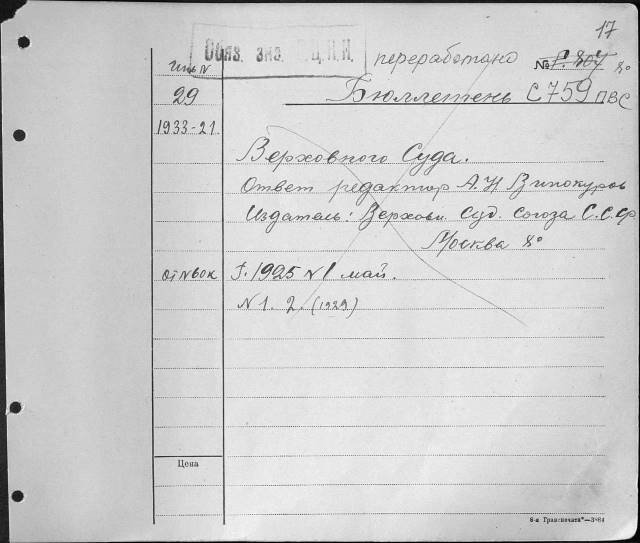 17
Обяз. экз.
переработано № Г. 807 8°
Инв N
29
Бюллетень С759 ПВС
1933-21
Верховного Суда.
Ответ редактор А.Н Винокуров
Издатель: Верховн. Суд. Союза С.С.Р
Москва 8°
Г. 1925 N 1 май.
N 1. 2. (1929)
Цена
8-я Транспечать"—3984